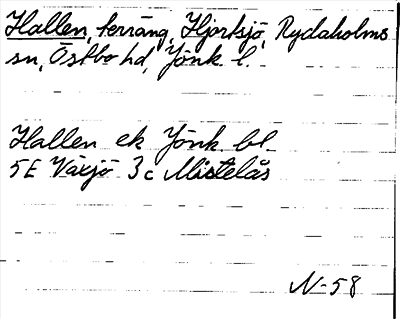 Hallen, terräng, Hjortsjö, Rydaholms
sn, Östbo hd, Jönk. l.
Hallen ek Jönk. bl.
5E Växjö 3c Mistelås
N-58